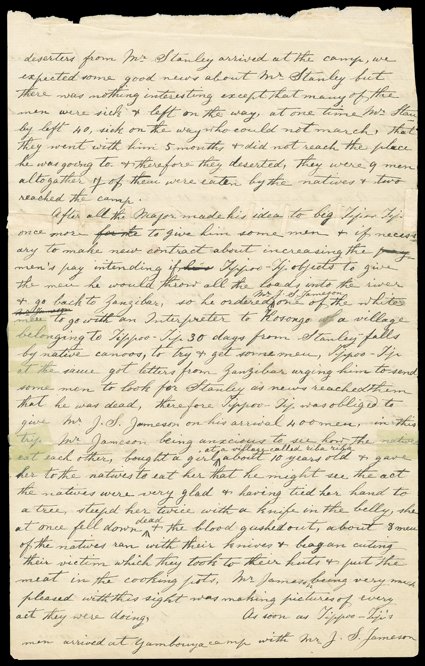 deserters from Mr Stanley arrived at the camp, we
expected some good news about Mr Stanley but
there was nothing interesting except that many of the
men were sick & left on the way, at one time Mr Stan-
ley left 40, sick on the way who could not march, that
they went with him 5 months, & did not reach the place
he was going to & therefore they deserted, they were 9 men
altogether 7 of them were eaten by the natives & two
reached the camp.
After all the Major made his idea to beg Tippoo-Tip
once more for the to give him some men & if necess-
ary to make new contract about increasing the pay
men's pay intending if Tippoo-Tip objects to give
the men he would throw all the loads into the river
& go back to Zanzibar, so he ordered Mr J. S. Jameson one of the white
men to go with an Interpreter to Kosongo a village
belonging to Tippoo-Tip 30 days from Stanley falls
by native canoos, to try & get some men, Tippoo-Tip
at the same got letters from Zanzibar urging him to send
some men to look for Stanley as news reached them
that he was dead, therefore Tippoo-Tip was obliged to
give Mr J. S. Jameson on his arrival 400 men, in this
trip Mr Jameson being anxcious to see how the natives
eat each other, bought a girl at a village called Riba Riba about 10 years old & gave
her to the natives to eat her that he might see the act
the natives were very glad & having tied her hand to
a tree, steped her twice with a knife in the belly, she
at once fell down dead & the blood gushed out, about 3 men
of the natives ran with their knives & began cuting
their victim which they took to their huts & put the
meat in the cooking pots, Mr Jameson being very much
pleased with this sight was making pictures of every
act they were doing. As soon as Tippoo-Tip's
men arrived at Yambouya camp with Mr J. S. Jameson